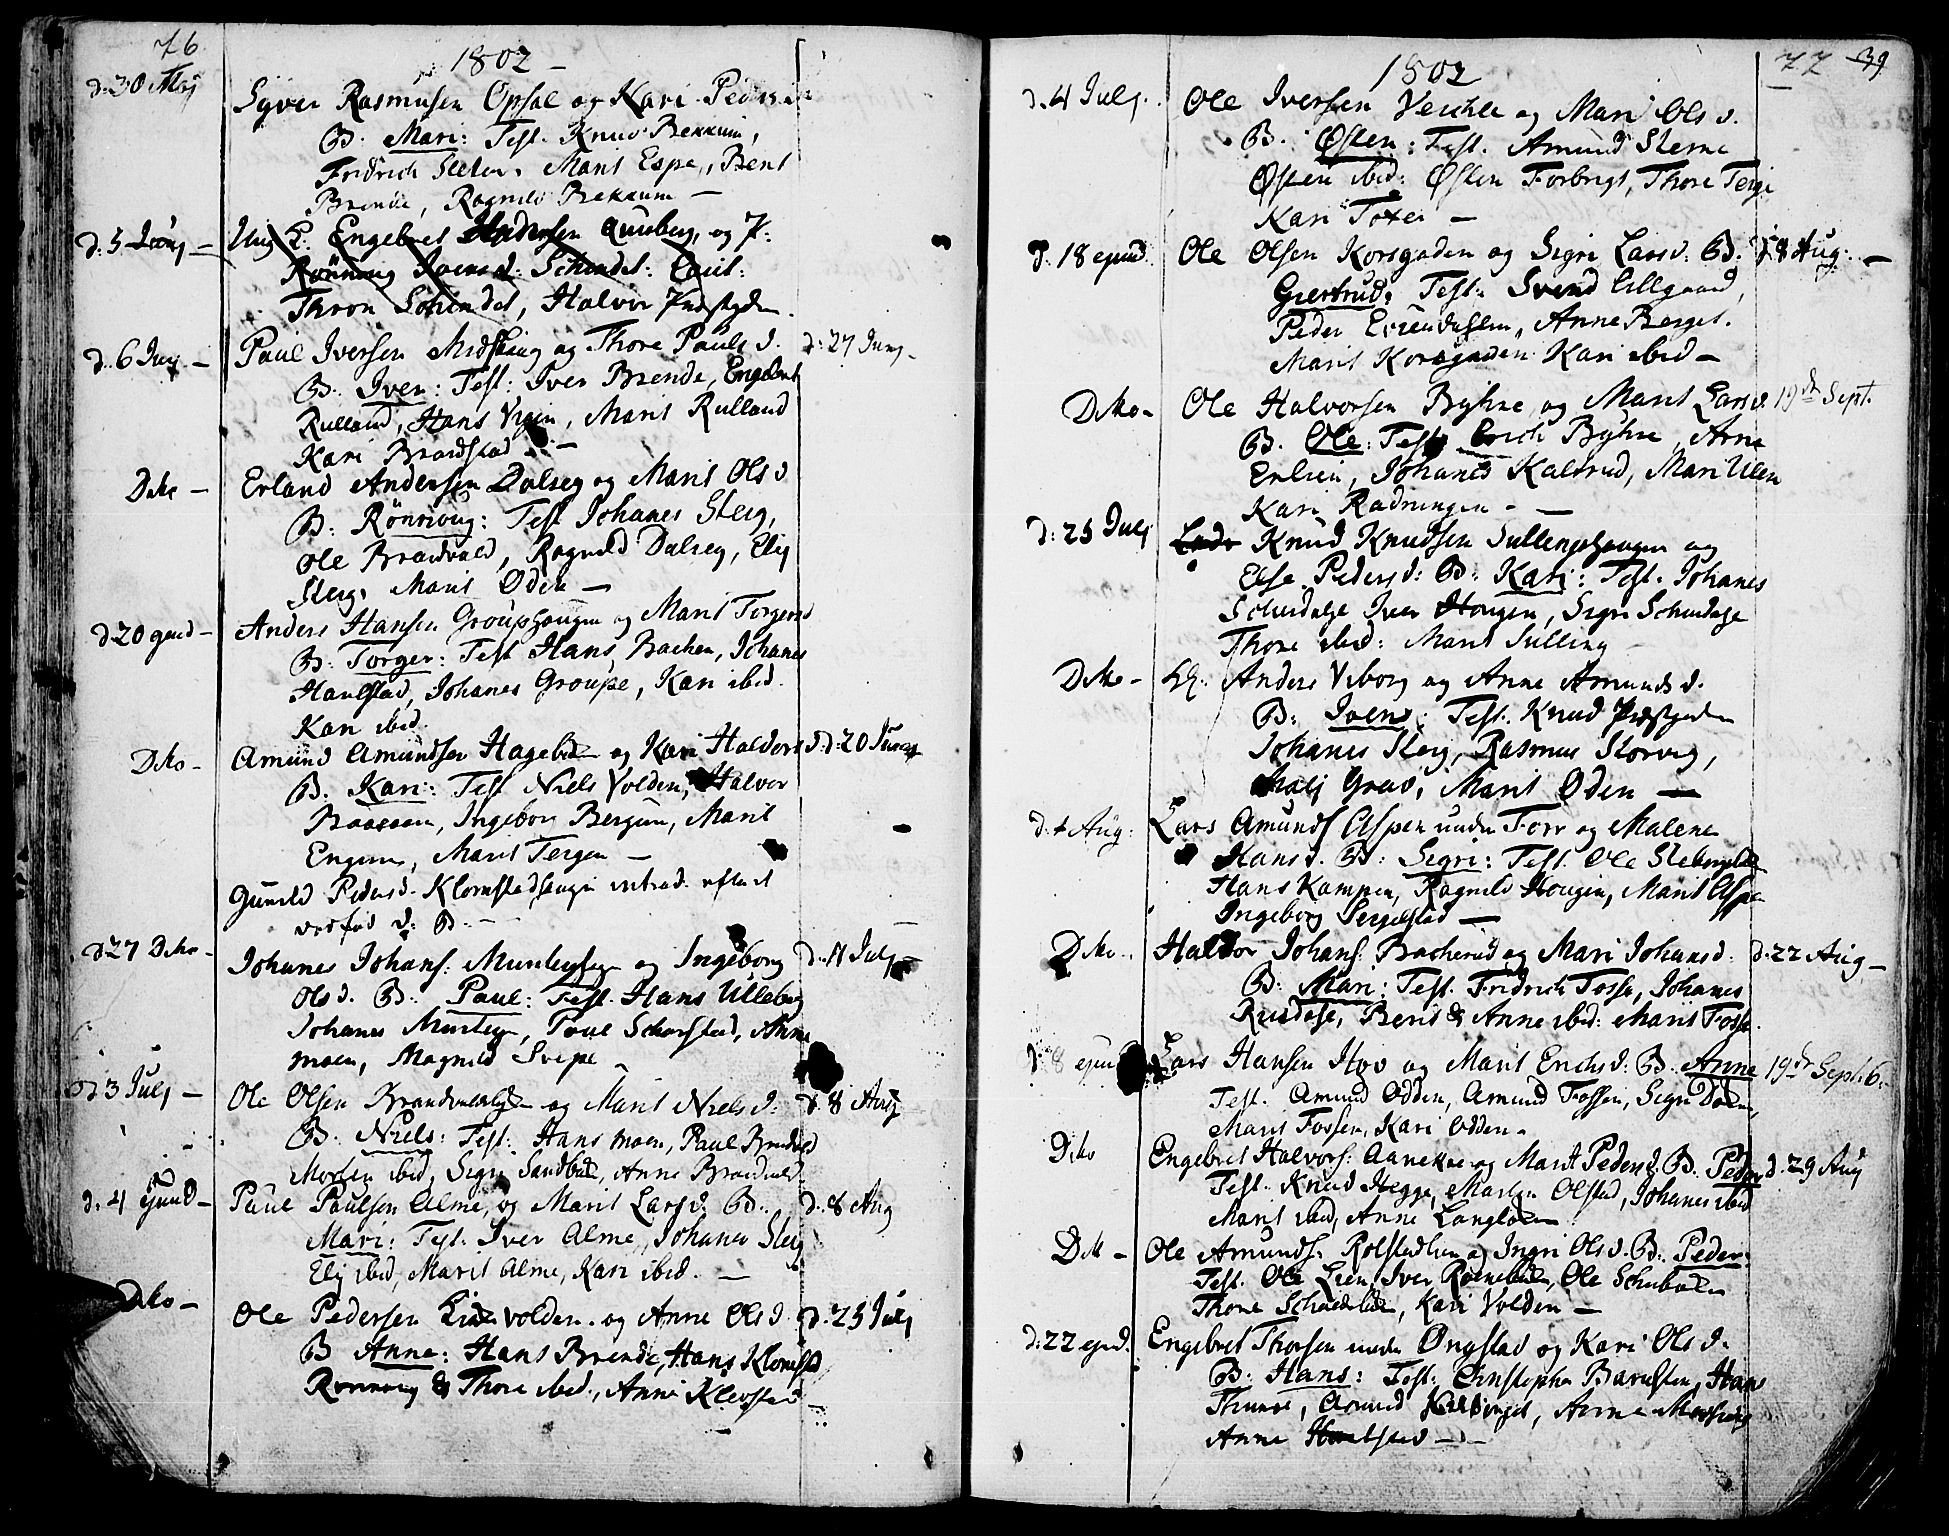 76
1802 –
d. 30 Maj Syver Rasmusen Opsal og Kari Peders
B. Mari: Test. Knud Bekkum,
Fridrich Sleten, Marit Espe, Bent
Brende, Ragnild Bekkum –
d. 5 – Ung K. Engebret Andersen og J.
Rönnoug Iversd: Schindel:
Thron Schindel, Halvor Præstgrden.
d. 6 Juny – Paul Iversen Midskoug og Thore Pauls d. d. 27 Juny –
B. Iver: Test: Iver Brende, Engebret
Rulland, Hans Vigen, Marit Rulland
Kari Brandstad –
Dito – Erland Andersen Dalseg og Marit Ols d
B. Rönnoug: Test Johanes Steig,
Ole Brandvold, Ragnild Dalseg, Elij
Steig, Marit Oden –
d. 20 ejusd – Anders Hansen Groupshougen og Marit Torgers d
B. Torger: Test Hans Bachen, Johanes
Haulstad, Johanes Groupe, Kari ibid.
Kari ibid.
Dito – Amund Amundsen Hagebak og Kari Haldors d. d. 20 Juny
B. Kari: Test Niels Volden, Halvor
Baaraaen, Ingeborg Bergum, Marit
Engum, Marit Tergen –
Gunild Peders d. Klomstadhougen introd. efter et
dødfød d: B. –
d. 27 Dito – Johanes Johans: og Ingeborg d. 11 July –
Ols d. B: Paul: Test. Hans Ulleberg
Johanes Paul Schorstad, Anne
moen, Magnild Svipe –
d 3 July – Ole Olsen og Marit Niels d: d. 8 Aug
B. Niels: Test: Hans moen, Paul Brandvold
Morten ibid, Sigri Sandbak, Anne Brandvold
d. 4 ejusd – Paul Paulsen Alme, og Marit Lars d: B: d. 8 Aug
Mari: Test. Iver Alme, Johanes Steig
Elij ibid, Marit Alme, Kari ibid. –
Dito – Ole Pedersen Lievolden og Anne Ols d d. 25 July
B Anne: Hans Brende, Hans Klomstad
Rönnoug & Thore ibid., Anne Klevstad –
77 39
1802
d. 4 July. Ole Iversen Veichle og Mari Ols d.
B. Østen: Test. Amund Sterne
Østen ibid: Østen Forbrigt, Thore Terge
Kari Toxen –
d. 18 ejusd. Ole Olsen Korsgaden og Sigri Lars d: B. d. 8 Aug: –
Giertrud, Test: Svend Ellgaard,
Peder Anne Berget.
Marit Korsgaden Kari ibid –
Dito – Ole Halvorsen Byhre og Marit Lars d. 19de Sept.
B. Ole: Test Erich Byhre, Arne
Enlien, Johanes Kalsrud, Mari Ulen
Kari Radningen –
d: 25 July Knud Knudsen Sullengshougen og
Else Peders d: B: Kari: Test. Johanes
Schindalse Iver Hougen, Sigri Schindalse
Thore ibid: Marit Sulling
Dito – Anders Viborg og Anne Amunds d.
B: Ivend: Test. Knud Præstgrden
Johanes Steig, Rasmus Storvig,
Malj Grav, Marit Oden –
d. 1 Aug: Lars Amunds Aspen under Forr og Malene
Hans d. B: Sigri: Test. Ole
Hans Kampen, Ragnild Hougen, Marit Aspen
Ingeborg Sergelstad –
Dito. Haldor Johans: Bacherud og Mari Johans d: d. 22 Aug –
B: Mari: Test. Fridrich Fosse, Johanes
Rusdøse, Berit & Anne ibid: Marit Fosse.
d. 8 ejusd Lars Hansen Hov og Marit Erichs d: B. Anne 19de Septb.
Test. Amund Odden, Amund Fossen, Sigri Dalen,
Marit Fossen, Kari Odden –
Dito Engebret Halvors: Aanekre og Marit Peders d. B. Peder d. 29 Aug
Test. Knud Hegge, Morten Olstad, Johanes ibid
Marit ibid, Anne
Dito – Ole Amunds: Rolstadlien og Ingri Ols d. B. Peder
Test. Ole Lien, Iver Ole Schubakken
Thore Kari Volden –
d: 22 ejusd. Engebret Thorsen under Ongstad og Kari Ols d.
B: Hans: Test: Christopher Hans
Thune, Amund Anne
Anne –